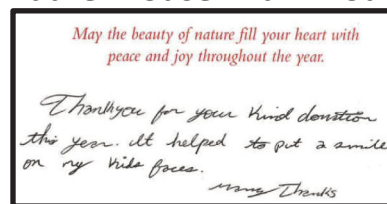 May the beauty of nature fill your heart with
peace and joy throughout the year.
Thankyou for your kind donation
this year. It helped to put a smile
on my kids faces.
Many Thanks